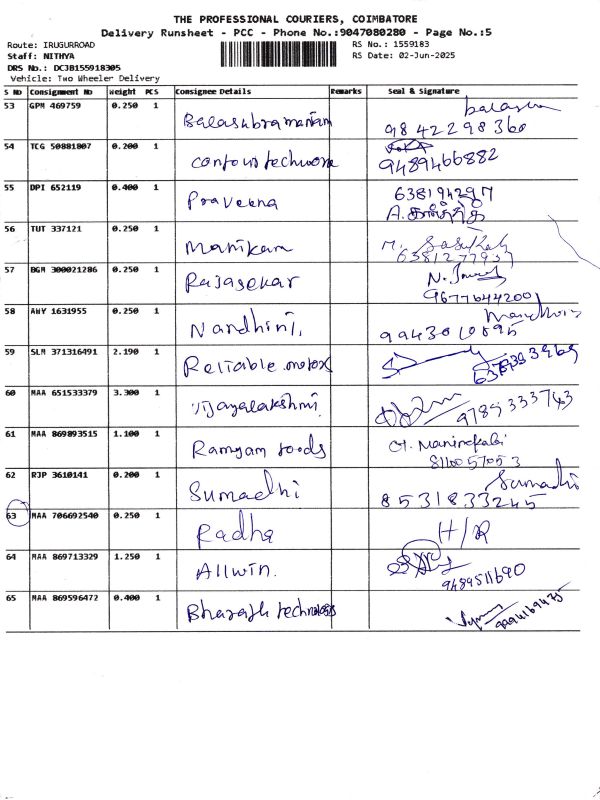 THE PROFESSIONAL COURIERS, COIMBATORE
Delivery Runsheet - PCC - Phone No.:9047080280 - Page No.:5
Route: IRUGURROAD RS No.: 1559183
Staff: NITHYA RS Date: 02-Jun-2025
DRS No.: DCJB155918305
Vehicle: Two Wheeler Delivery
S No Consignment No Weight PCS Consignee Details Remarks Seal & Signature
53 GPM 469759 0.250 1
Balasubramaniam 9842298360
54 TCG 50881807 0.200 1
contour techwork 9489466882
55 DPI 652119 0.400 1 638194297
Praveena A.
56 TUT 337121 0.250 1
Manikam M.
57 BGM 300021286 0.250 1
Rajasekar N.
9677644200
58 AWY 1631955 0.250 1
Nandhini, 9943010895
59 SLM 371316491 2.190 1
Reliable motox
60 MAA 651533379 3.300 1
Vijayalakshmi 9789333743
61 MAA 869893515 1.100 1
Ramyam foods
8110057053
62 RJP 3610141 0.200 1 Sumadhi
Sumadhi 8531833245
63 MAA 706692540 0.250 1
Radha H/R
64 MAA 869713329 1.250 1
Allwin. 9489511690
65 MAA 869596472 0.400 1
Bharath technologies